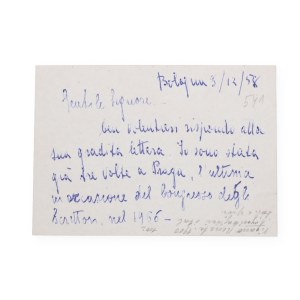 Bologna 3/12/58
Gentile Signore.
ben volentieri rispondo alla
sua gradita lettera. Io sono stata
già tre volte a Praga, l'ultima
in occasione del Congresso degli
Scrittori, nel 1956 -